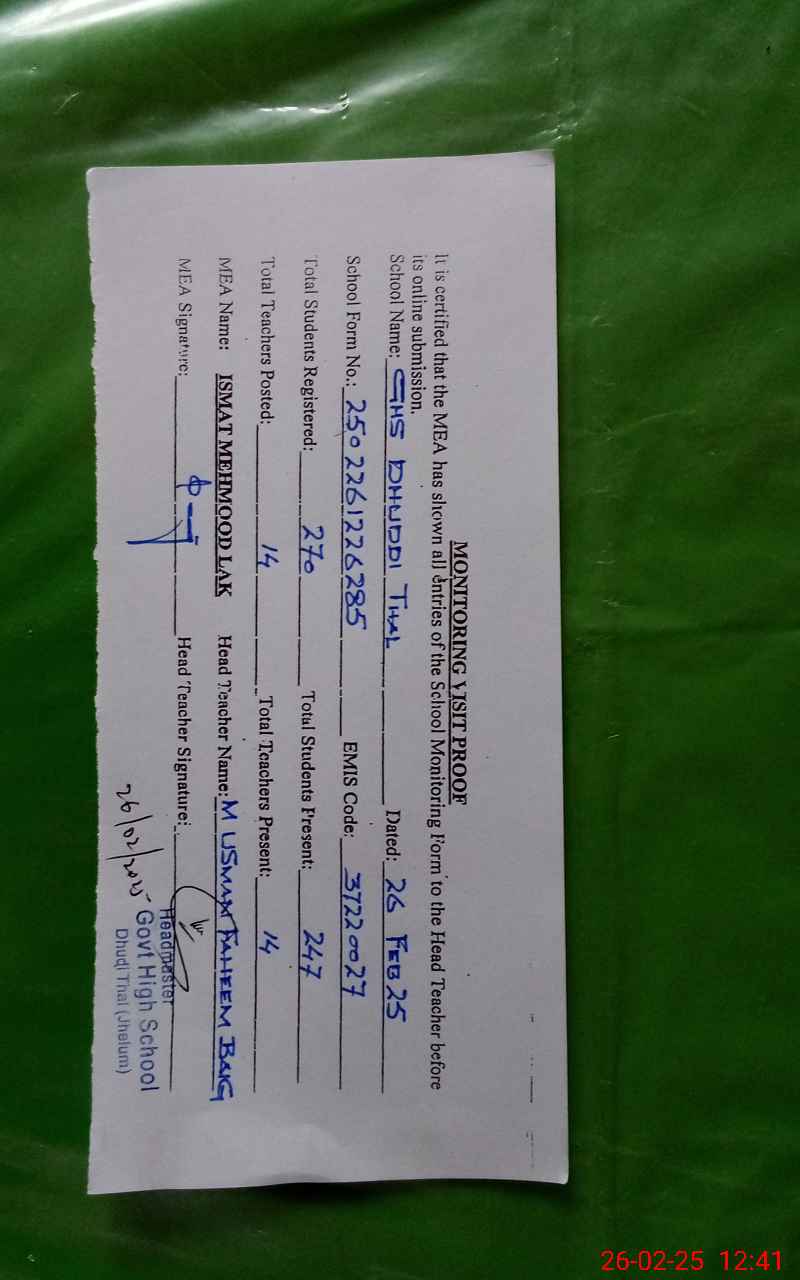 MONITORING VISIT PROOF
It is certified that the MEA has shown all entries of the School Monitoring Form to the Head Teacher before
its online submission.
School Name: GHS DHUDDI THAL Dated: 26 FEB 25
School Form No.: 2502261226285 EMIS Code: 37220027
Total Students Registered: 270 Total Students Present: 247
Total Teachers Posted: 14 Total Teachers Present: 14
MEA Name: ISMAT MEHMOOD LAK Head Teacher Name: M USMAN FAHEEM BAIG
MEA Signature: Head Teacher Signature:
26/02/2025
Headmaster
Govt High School
Dhudi Thal (Jhelum)
26-02-25 12:41